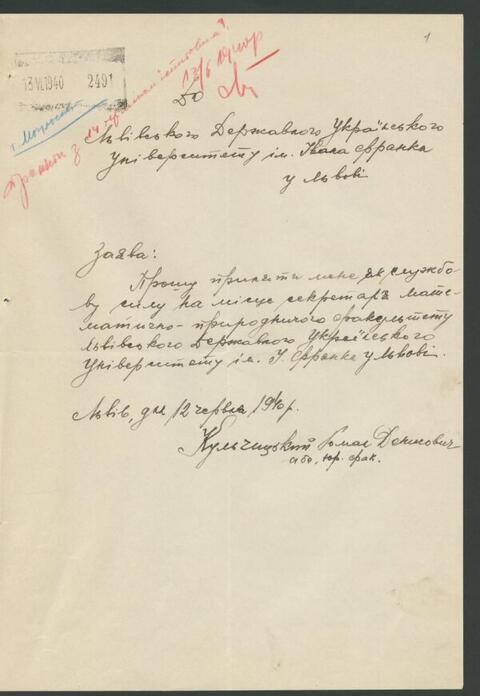 1
13 VI. 1940 2491
13/6 1940р
До
Львівського Державного Українського
Університету ім. Івана Франка
у Львові
Заява:
Прошу приняти мене як службо-
ву силу на місце секретаря мате-
матично-природничого факультету
Львівського Державного Українського
Університету ім. І. Франка у Львові.
Львів, дня 12 червня 1940 р.
Кульчицький Роман Денисович
абс. юр. фак.